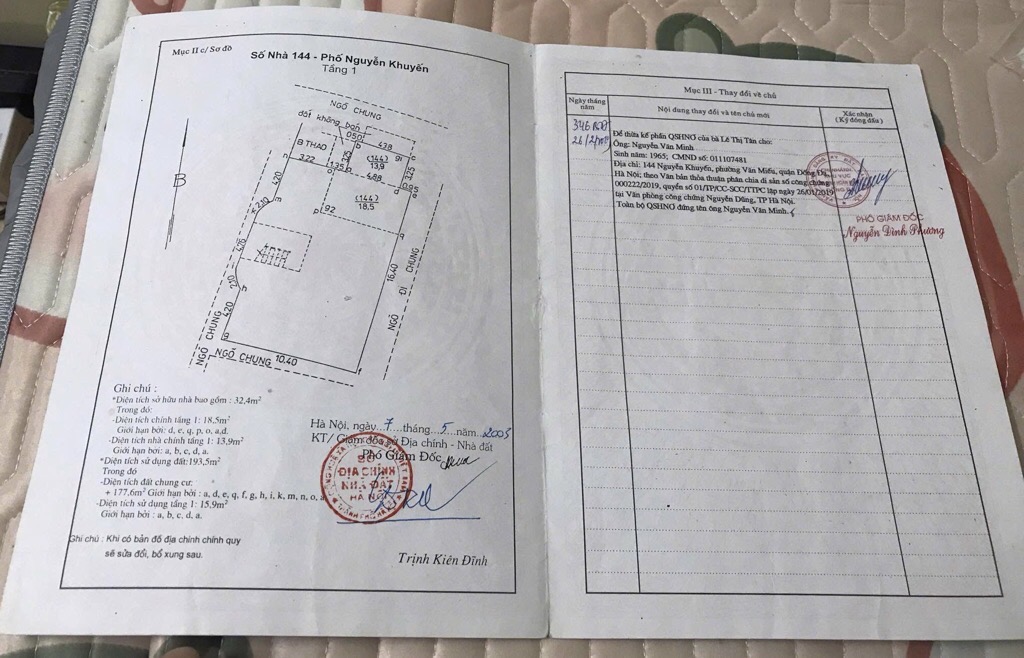 Mục II c/ Sơ đồ
Số Nhà 144 - Phố Nguyễn Khuyến
Tầng 1
NGÕ CHUNG
đất không ban
050
438
B THAO
3.22
1.35
(144)
13,9
4.88
0.95
(144)
18,5
n
b
g
i
c
a
o
d
p
92
q
420
m
k
210
B
476
210
h
420
g
16.40
NGÕ ĐI CHUNG
NGÕ CHUNG
NGÕ CHUNG 10.40
f
Ghi chú :
*Diện tích sở hữu nhà bao gồm : 32,4m²
Trong đó:
-Diện tích chính tầng 1: 18,5m²
Giới hạn bởi: d, e, q, p, o, a,d.
-Diện tích nhà chính tầng 1: 13,9m²
Giới hạn bởi: a, b, c, d, a.
*Diện tích sử dụng đất:193,5m²
Trong đó
-Diện tích đất chung cư:
+ 177,6m² Giới hạn bởi : a, d, e, q, f, g, h, i, k, m, n, o, a
-Diện tích sử dụng tầng 1: 15,9m²
Giới hạn bởi : a, b, c, d, a.
Ghi chú : Khi có bản đồ địa chinh chính quy
sẽ sửa đổi, bổ xung sau.
Hà Nội, ngày 7 tháng 5 năm 2003
KT/ Giám đốc sở Địa chính - Nhà đất
Phó Giám Đốc
SỞ
ĐỊA CHÍNH
NHÀ ĐẤT
HÀ NỘI
Trịnh Kiên Đĩnh
Mục III - Thay đổi về chủ
Ngày tháng năm
Nội dung thay đổi và tên chủ mới
Xác nhận
(Ký đóng dấu)
Để thừa kế phần QSHNƠ của bà Lê Thị Tân cho:
Ông: Nguyễn Văn Minh
Sinh năm: 1965; CMND số: 011107481
Địa chỉ: 144 Nguyễn Khuyến, phường Văn Miếu, quận Đống Đa,
Hà Nội; theo Văn bản thỏa thuận phân chia di sản số công chứng
000222/2019, quyển số 01/TP/CC-SCC/TTPC lập ngày 26/01/2019
tại Văn phòng công chứng Nguyễn Dũng, TP Hà Nội.
Toàn bộ QSHNƠ đứng tên ông Nguyễn Văn Minh.
PHÓ GIÁM ĐỐC
Nguyễn Đình Phương